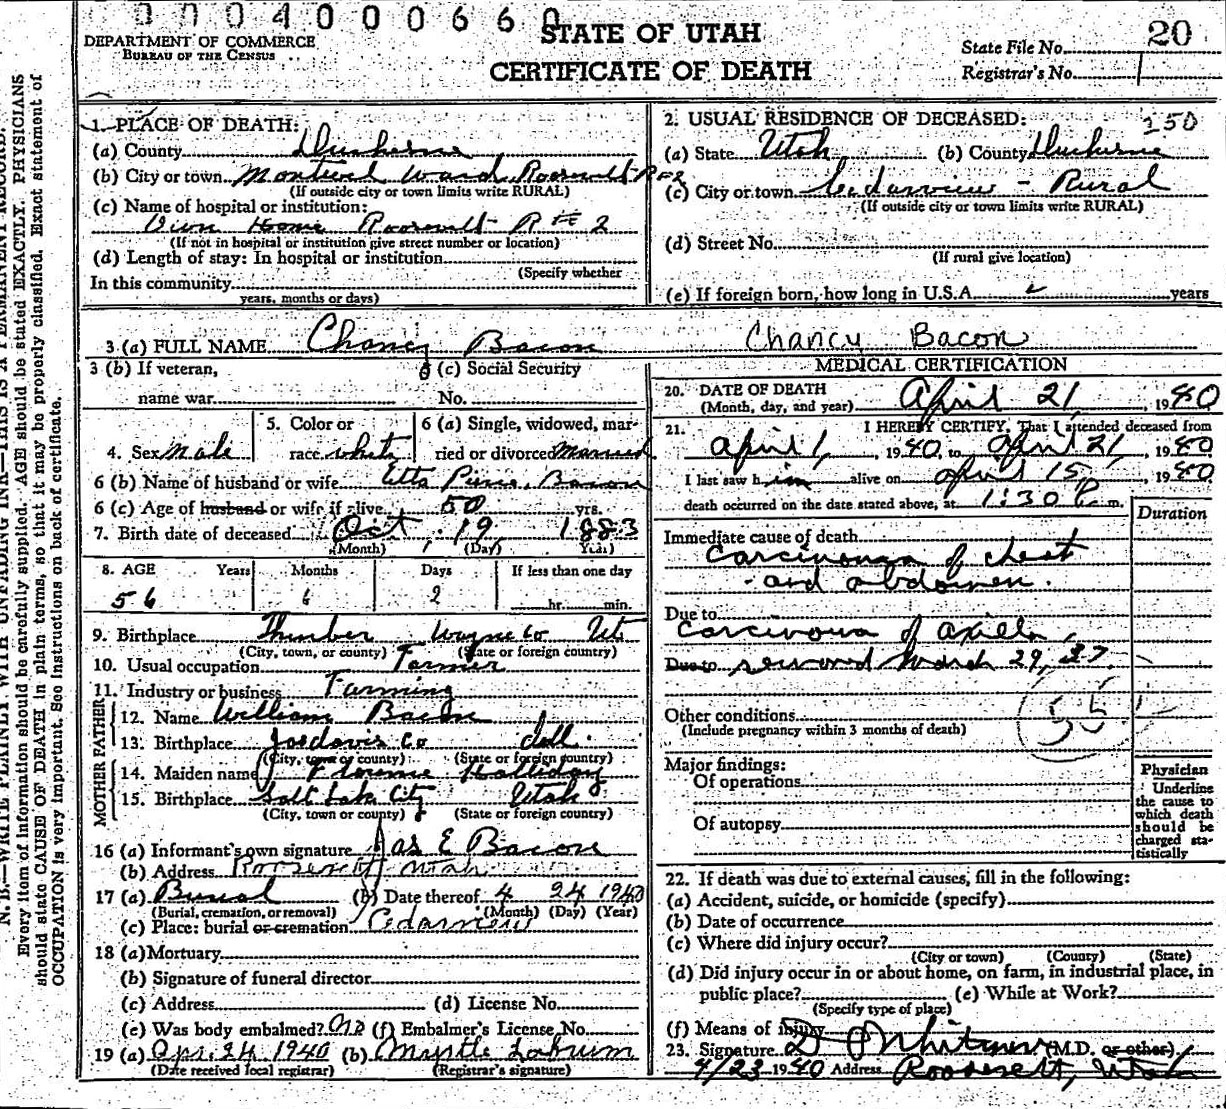 0004000660
STATE OF UTAH
CERTIFICATE OF DEATH
DEPARTMENT OF COMMERCE
BUREAU OF THE CENSUS
State File No. 20
Registrar's No. 1
N. B.—WRITE PLAINLY WITH UNFADING INK—THIS IS A PERMANENT RECORD.
Every item of information should be carefully supplied. AGE should be stated EXACTLY. PHYSICIANS
should state CAUSE OF DEATH in plain terms, so that it may be properly classified. Exact statement of
OCCUPATION is very important. See instructions on back of certificate.
1. PLACE OF DEATH:
(a) County Duchesne
(b) City or town Montwel Ward Roosevelt R#2
(If outside city or town limits write RURAL)
(c) Name of hospital or institution:
Own Home Roosevelt R#2
(If not in hospital or institution give street number or location)
(d) Length of stay: In hospital or institution
(Specify whether
In this community
years, months or days)
2. USUAL RESIDENCE OF DECEASED: 250
(a) State Utah (b) County Duchesne
(c) City or town Cedarview - Rural
(If outside city or town limits write RURAL)
(d) Street No.
(If rural give location)
(e) If foreign born, how long in U.S.A. years
3 (a) FULL NAME Chancy Bacon Chancy Bacon
3 (b) If veteran,
name war
(c) Social Security
No.
4. Sex Male
5. Color or
race white
6 (a) Single, widowed, mar-
ried or divorced Married
6 (b) Name of husband or wife Etta Bacon
6 (c) Age of husband or wife if alive 50 yrs.
7. Birth date of deceased Oct 19 1883
(Month) (Day) (Year)
8. AGE Years Months Days If less than one day
56 6 2 hr. min.
9. Birthplace Thurber Wayne Co Ut
(City, town, or county) (State or foreign country)
10. Usual occupation Farmer
11. Industry or business Farming
FATHER
12. Name William Bacon
13. Birthplace Jo Daviis Co Ill.
(City, town or county) (State or foreign country)
MOTHER
14. Maiden name Florence Halliday
15. Birthplace Salt Lake City Utah
(City, town or county) (State or foreign country)
16 (a) Informant's own signature Jas E Bacon
(b) Address Roosevelt Utah
17 (a) Burial (b) Date thereof 4 24 1940
(Burial, cremation, or removal) (Month) (Day) (Year)
(c) Place: burial or cremation Cedarview
18 (a) Mortuary
(b) Signature of funeral director
(c) Address (d) License No.
(e) Was body embalmed? no (f) Embalmer's License No.
19 (a) Apr. 24 1940 (b) Myrtle Labrum
(Date received local registrar) (Registrar's signature)
MEDICAL CERTIFICATION
20. DATE OF DEATH
(Month, day, and year) April 21, 1940
21. I HEREBY CERTIFY, That I attended deceased from
April 1, 1940, to April 21, 1940
I last saw him alive on April 15, 1940
death occurred on the date stated above, at 1:30 P m.
Duration
Immediate cause of death
Carcinoma of chest
and abdomen.
Due to
Carcinoma of axilla,
Due to removed March 29, 37.
55
Other conditions
(Include pregnancy within 3 months of death)
Major findings:
Of operations
Of autopsy
Physician
Underline
the cause to
which death
should be
charged sta-
tistically
22. If death was due to external causes, fill in the following:
(a) Accident, suicide, or homicide (specify)
(b) Date of occurrence
(c) Where did injury occur?
(City or town) (County) (State)
(d) Did injury occur in or about home, on farm, in industrial place, in
public place? (e) While at Work?
(Specify type of place)
(f) Means of injury
23. Signature D P Whitmore (M.D. or other)
4/23 1940 Address Roosevelt, Utah